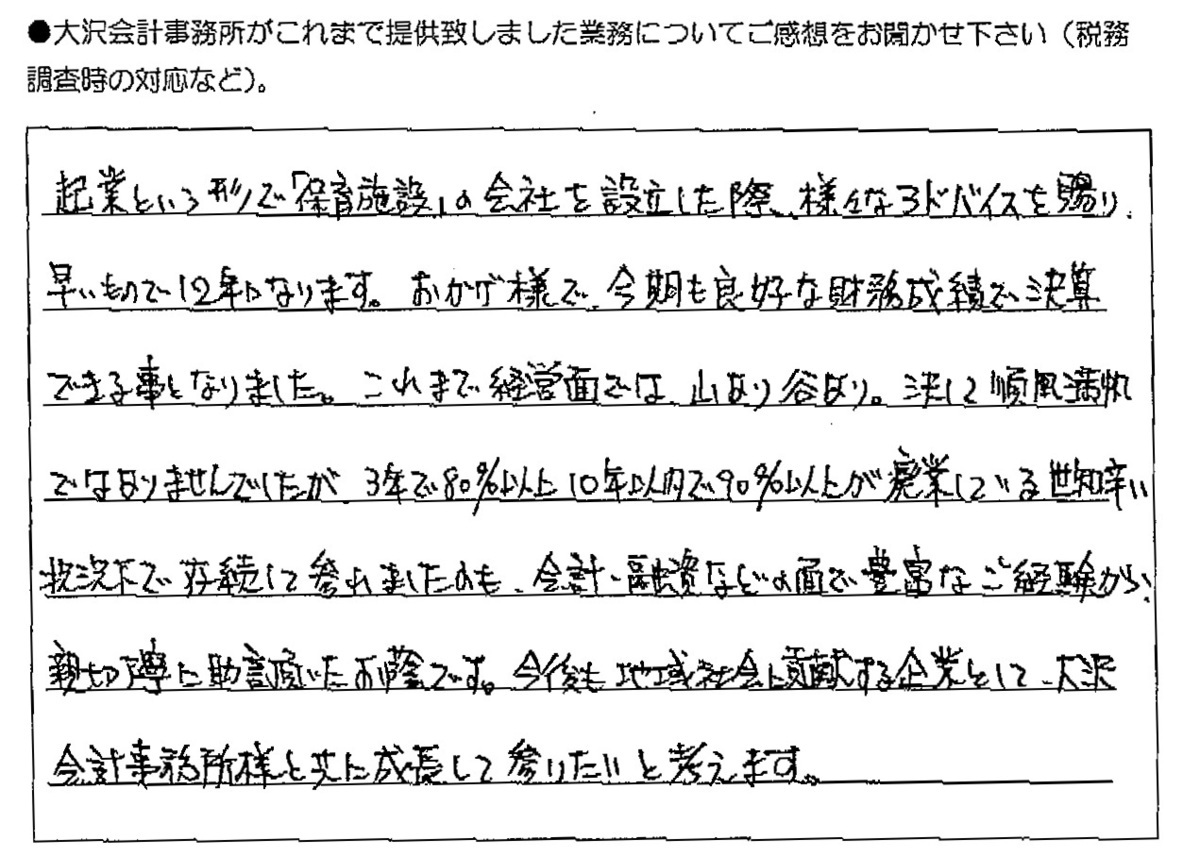 ●大沢会計事務所がこれまで提供致しました業務についてご感想をお聞かせ下さい（税務
調査時の対応など）。
起業という形で「保育施設」の会社を設立した際、様々なアドバイスを賜り、
早いもので12年になります。おかげ様で、今期も良好な財務成績で決算
できる事となりました。これまで経営面では、山あり谷あり。決して順風満帆
ではありませんでしたが、3年で80％以上、10年以内で90％以上が廃業している世知辛い
状況下で存続して参れましたのも、会計・融資などの面で豊富なご経験から、
親切丁寧に助言頂いたお蔭です。今後も地域社会に貢献する企業として、大沢
会計事務所様と共に成長して参りたいと考えます。